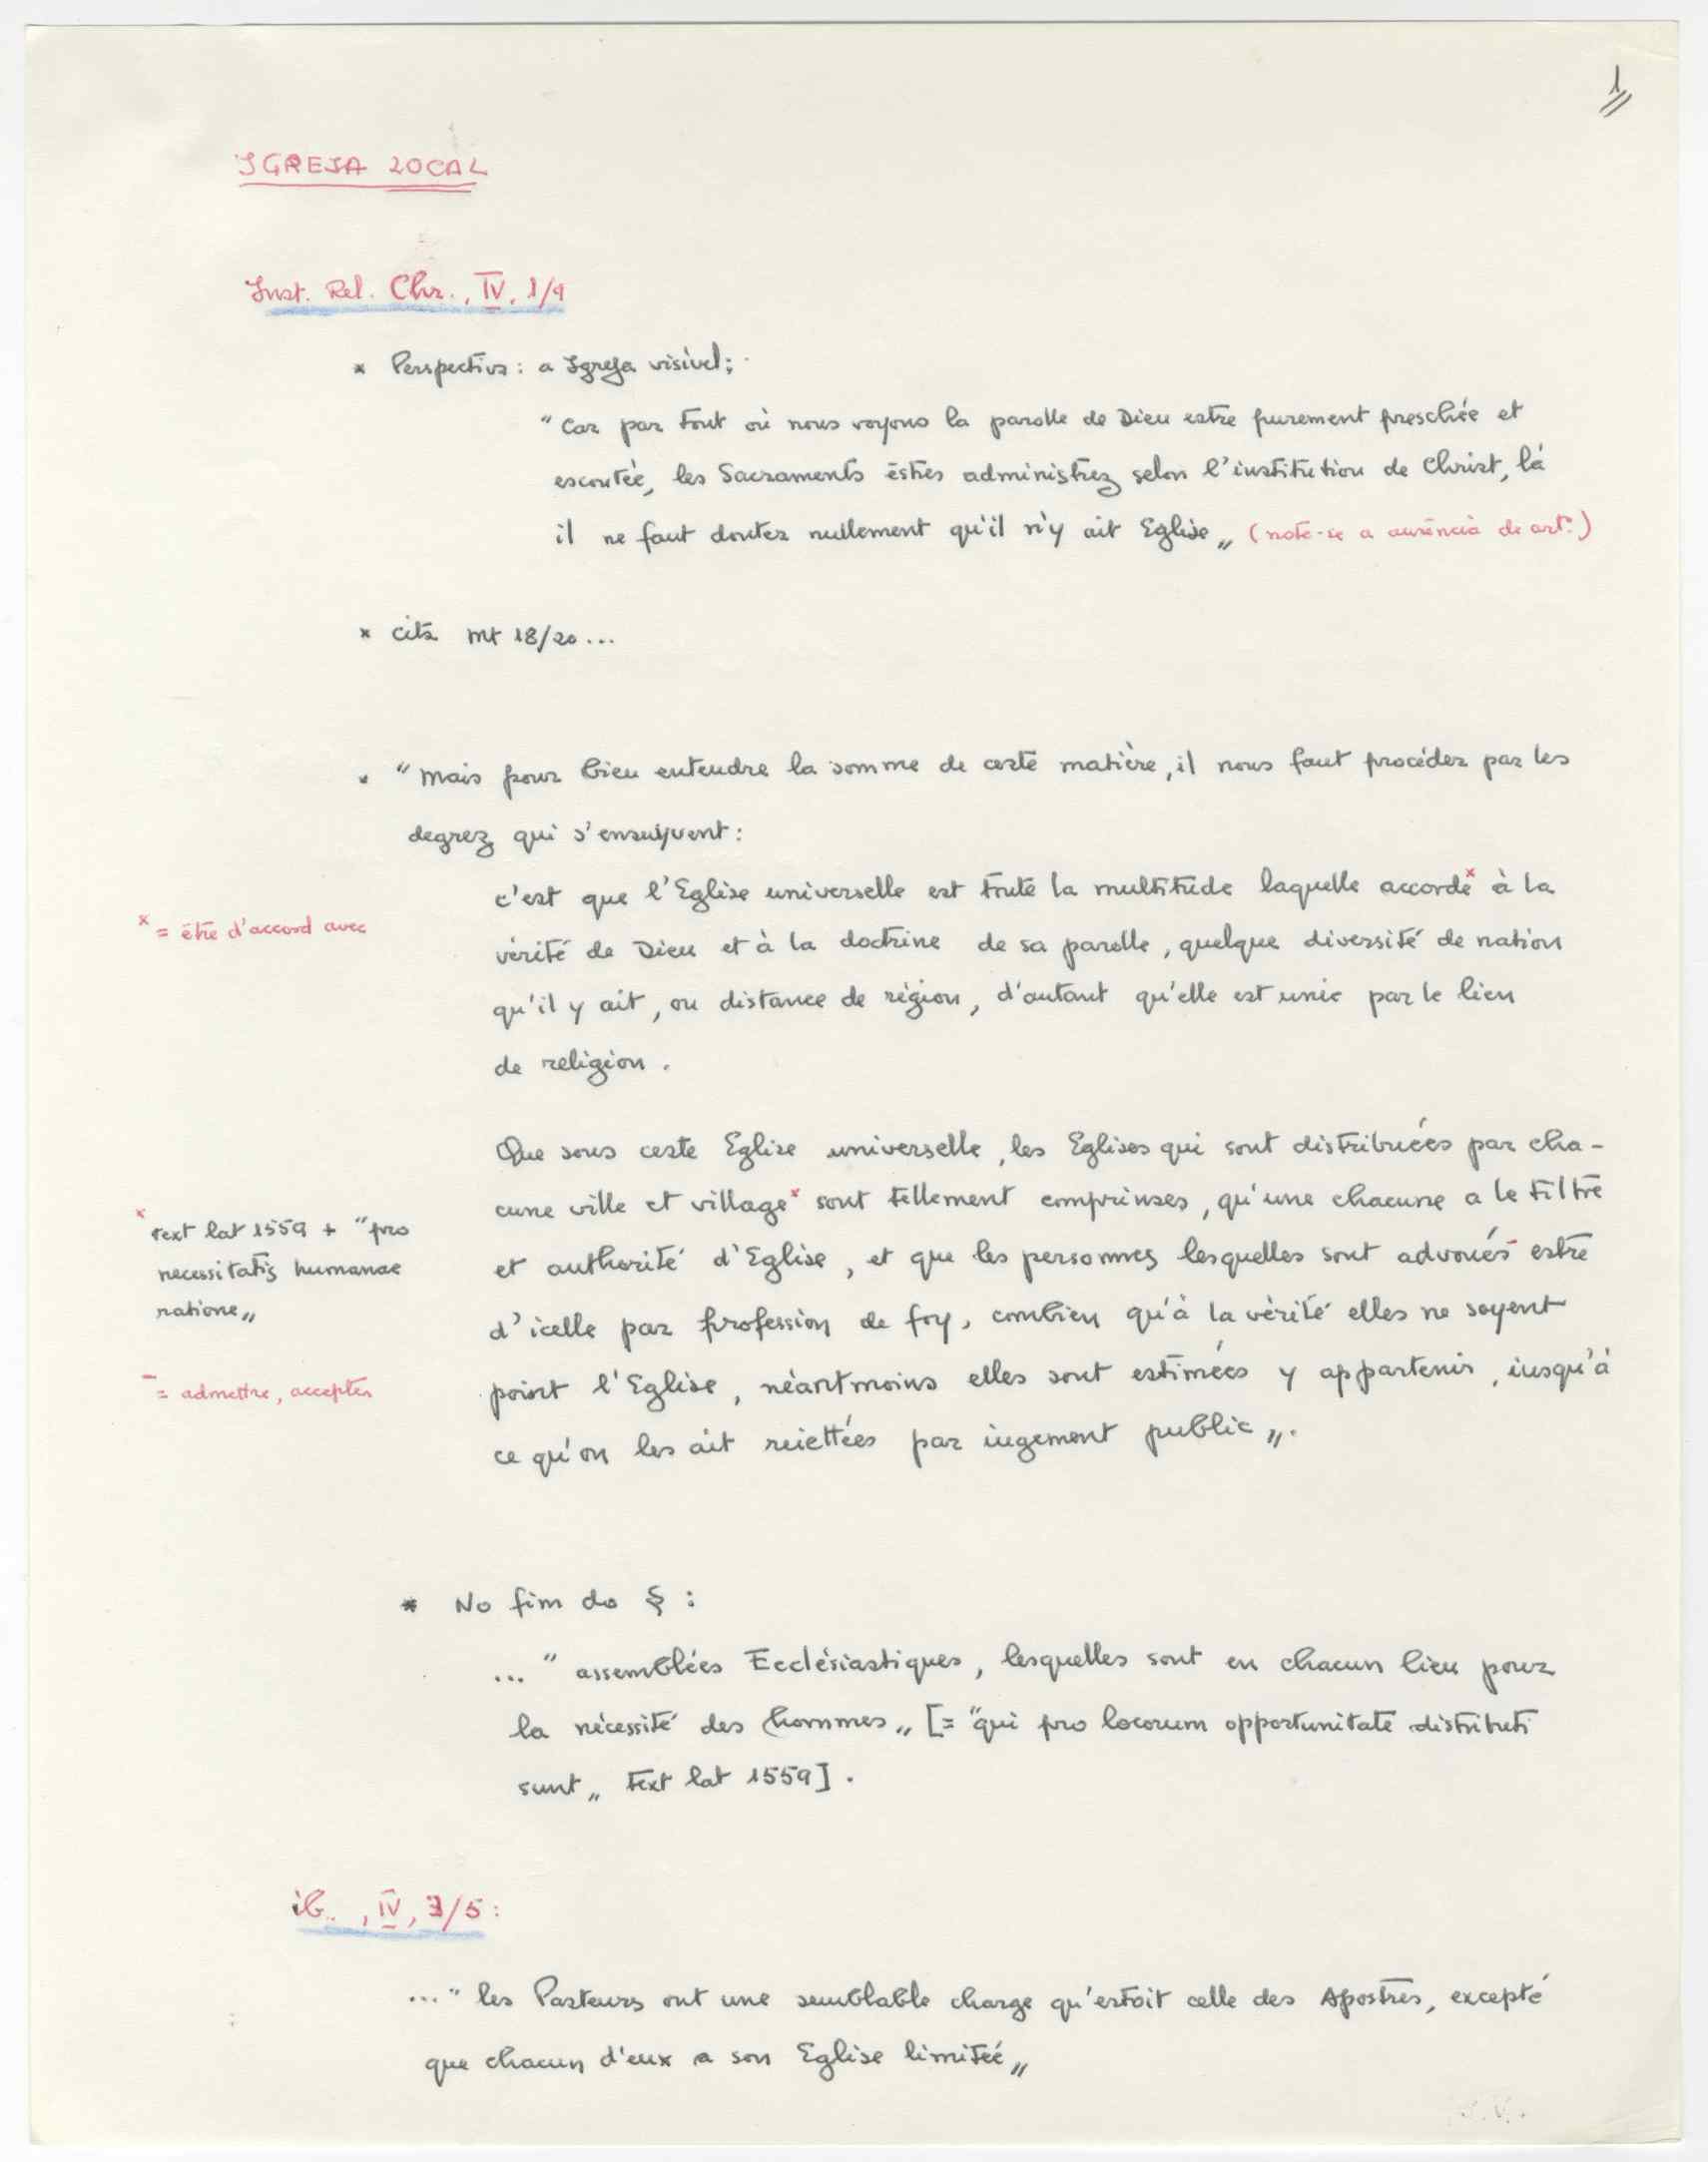 1
IGREJA LOCAL
Inst. Rel. Chr., IV, 1/9
* Perspectiva: a Igreja visível;
"Car par tout où nous voyons la parolle de Dieu estre purement preschée et
escoutée, les Sacraments estres administrez selon l'institution de Christ, là
il ne faut doutez nullement qu'il n'y ait Eglise„ (note-se a ausência de art.º)
* cita Mt 18/20...
* "Mais pour bien entendre la somme de ceste matière, il nous faut procéder par les
degrez qui s'ensuyvent:
c'est que l'Eglise universelle est toute la multitude laquelle accorde× à la
× = être d'accord avec
vérité de Dieu et à la doctrine de sa parolle, quelque diversité de nation
qu'il y ait, ou distance de région, d'autant qu'elle est unie par le lien
de religion.
Que sous ceste Eglise universelle, les Eglises qui sont distribuées par cha-
cune ville et village× sont tellement comprinses, qu'une chacune a le tiltre
× text lat 1559 + "pro
necessitatis humanae
ratione„
et authorité d'Eglise, et que les personnes lesquelles sont advoués- estre
d'icelle par profession de foy, combien qu'à la vérité elles ne soyent
- = admettre, accepter
point l'Eglise, néantmoins elles sont estimées y appartenir, iusqu'à
ce qu'on les ait reiettées par iugement public„.
* No fim do § :
..." assemblées Ecclésiastiques, lesquelles sont en chacun lieu pour
la nécessité des hommes„ [= "qui pro locorum opportunitate distributi
sunt„ text lat 1559].
ib., IV, 3/5:
..." les Pasteurs ont une semblable charge qu'estoit celle des Apostres, excepté
que chacun d'eux a son Eglise limitée„